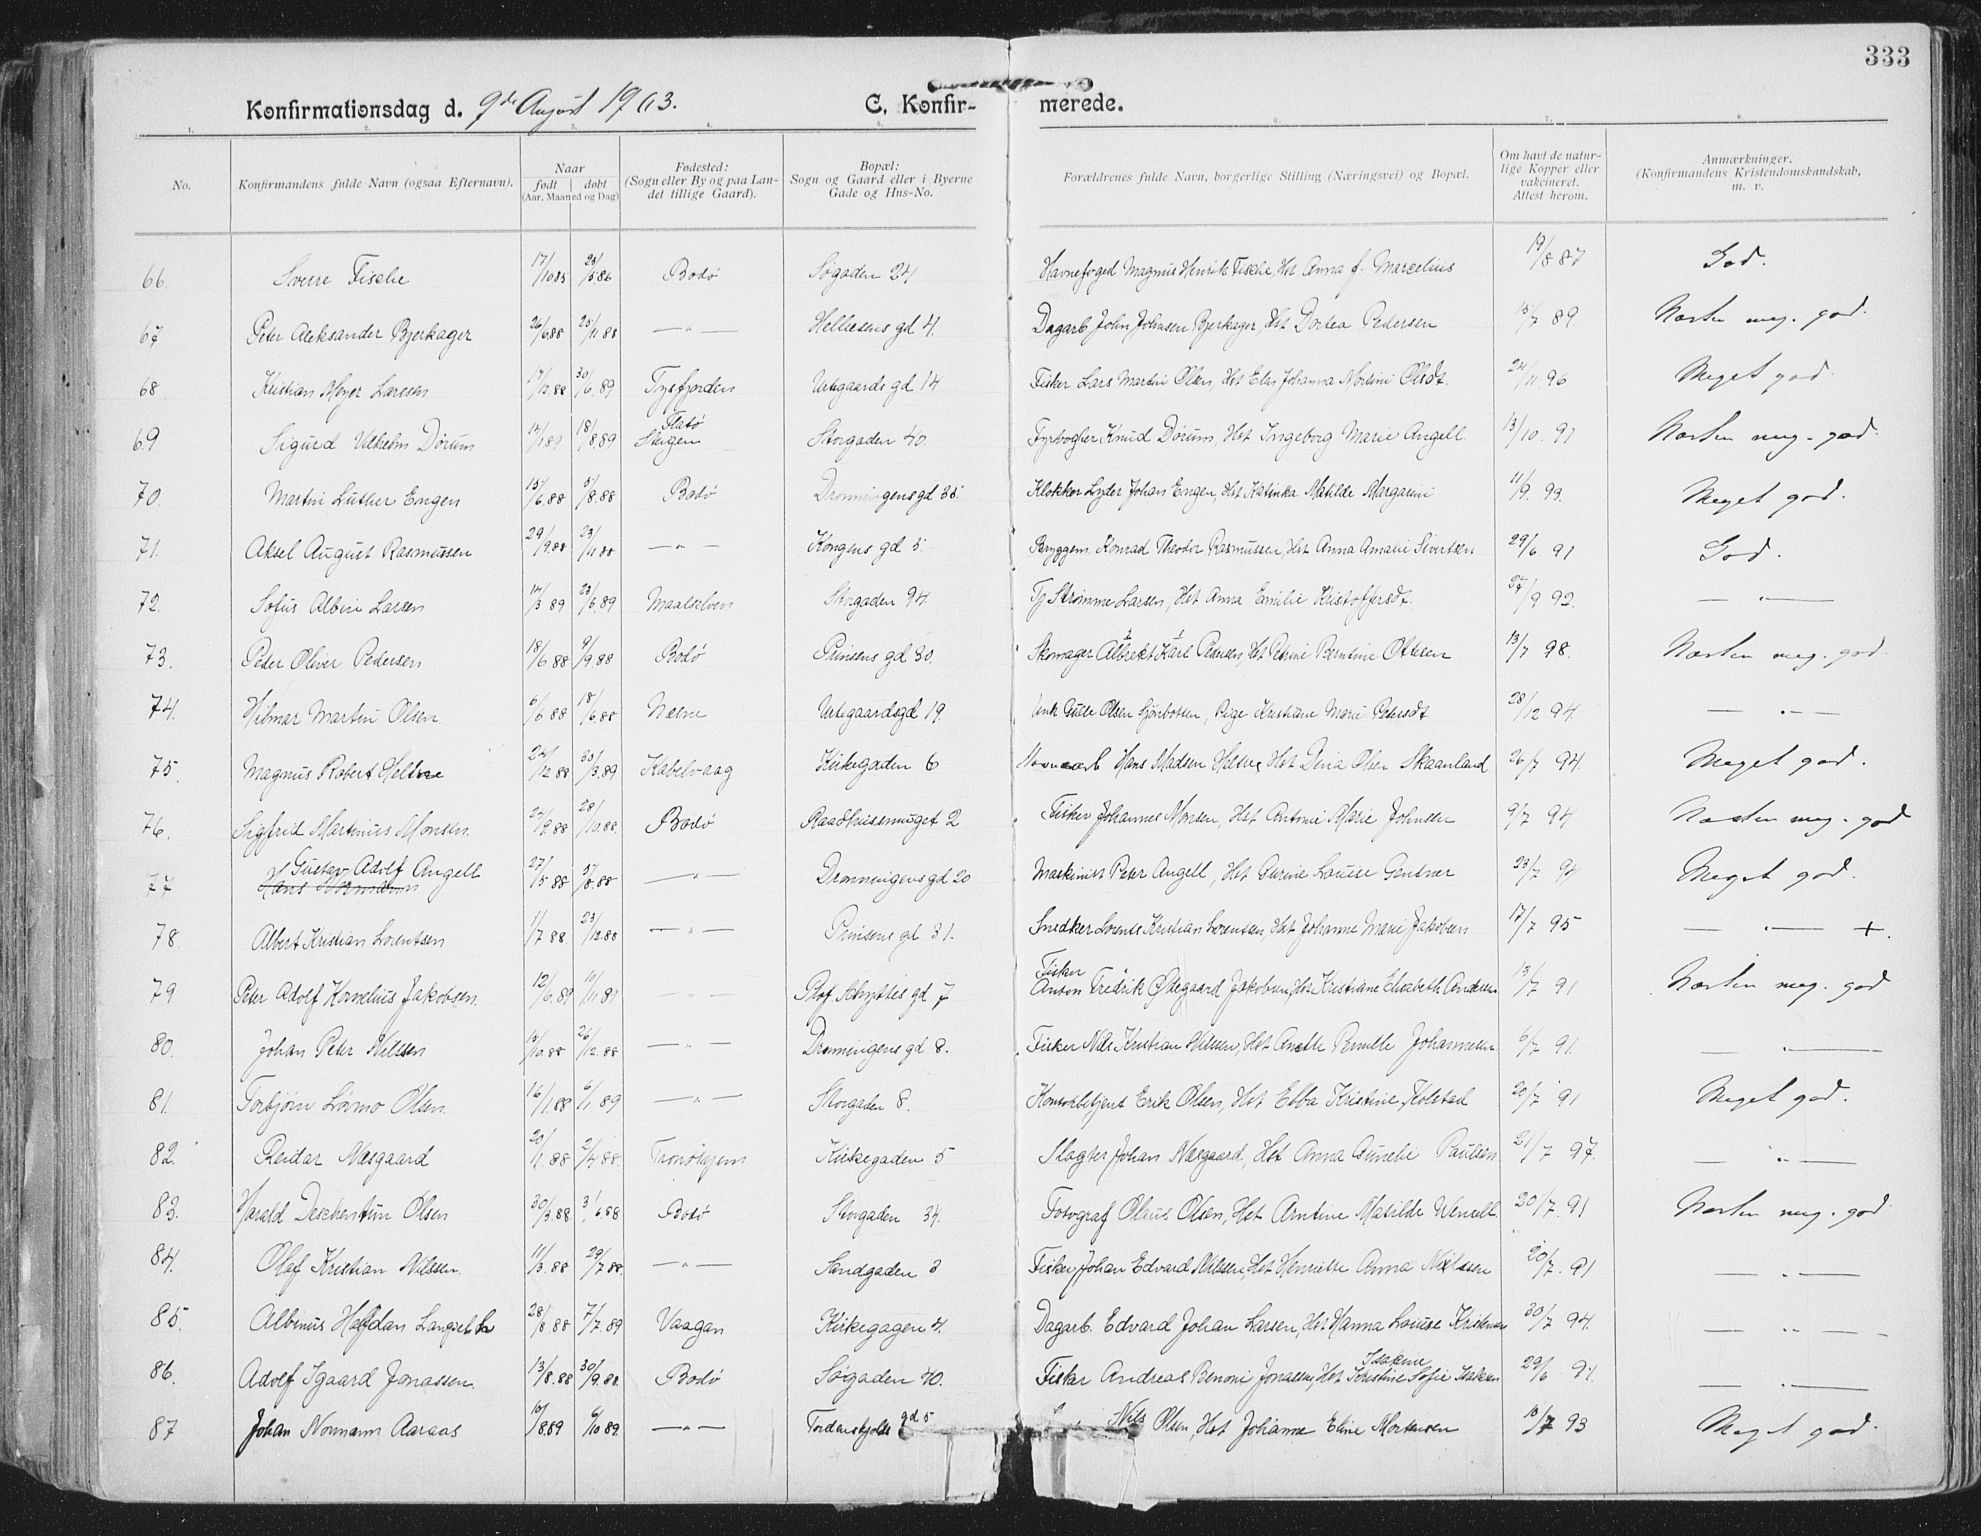 333
Konfirmationsdag d. 9de August 1903. C. Konfirmerede.
1. 2. 3. 4. 5. 6. 7. 8
No.
Konfirmandens fulde Navn (ogsaa Efternavn).
Naar
født døbt
(Aar, Maaned og Dag)
Fødested:
(Sogn eller By og paa Lan-
det tillige Gaard).
Bopæl:
Sogn og Gaard eller i Byerne
Gade og Hus-No.
Forældrenes fulde Navn, borgerlige Stilling (Næringsvei) og Bopæl.
Om havt de natur-
lige Kopper eller
vakcineret.
Attest herom.
Anmærkninger.
(Konfirmandens Kristendomskundskab,
m. v.
66. Sverre Fische 17/10 85 Bodø Søgaden 24 Havnefoged Magnus Henrik Fische, Hst Anna f. Marcelius 19/8 87 God.
67 Peter Aleksander Bjerkager 26/6 88 25/11 88 — " — Hellesens gd 4. Dagarb. John Johnsen Bjerkager, Hst Dortea Pedersen 15/7 89. Næsten meg. god.
68. Kristian Meyer Larsen 17/12 88 30/6 89 Tysfjorden Urtegaards gd 14 Fisker Lars Martin Olsen, Hst Johanna Olsdt. 24/11 96 Meget god.
69 Sigurd Vilhelm Dørum 14/1 89 18/8 89 Flatø Steigen Storgaden 40. Knud Dørum, Hst Ingeborg Marie Angell 13/10. 91 Næsten meg. god.
70. Martin Luther Engen 15/6 88 5/8 88 Bodø Dronningens gd 35. Klokker Lyder Johan Engen, Hst Katinka Matilde Margarini 11/9. 93. Meget god.
71. Aksel August Rasmussen 29/9 88 23/11 88 — " — Kongens gd 5. Bryggem. Konrad Theodor Rasmussen, Hst Anna Amalie Sivertsen 29/6. 91 God.
72. Sofus Albin Larsen 14/3 89 23/6 89 Maalselven Storgaden 94. Tj Strømme Larsen, Hst Anna Emilie Kristoffersdt. 27/9 92. — " —
73. Peter Oliver Pedersen 18/6 88 9/9 88 Bodø Prinsens gd 30. Skomager Albrekt Karl Pedersen, Hst Petrine Berntine Ottesen 13/7 98. Næsten meg. god.
74. Hilmar Martin Olsen 6/6 88 18/6 88 Nesne Urtegaardsgd 19. Olsen, Pige Kristiane Marie Petersdt 28/12 94. — " —
75. Magnus Robert 24/12 88 30/3 89 Kabelvaag Kirkegaden 6 Hans Madsen, Hst Dina Olsen Skaanland 26/7 94. Meget god.
76. Sigfrid Martinus Monsen 24/9 88 28/10 88. Bodø Raadhussmuget 2 Fisker Johannes Monsen, Hst Antonie Marie Johnsen 9/7 94 Næsten meg. god
77 Gustav Adolf Angell 27/5 88 5/8 88 — " — Dronningens gd 20 Maskinist Peter Angell, Hst Louise Gentner 23/7 94 Meget god.
78. Albert Kristian Lorentsen 1/7 88. 23/12 88 — " — Prinsens gd 31. Snedker Lorents Kristian Lorentsen, Hst Johanne Marie Jakobsen 17/7 95 — " — +.
79 Peter Adolf Kornelius Jakobsen 12/6 89 10/11 89 — " — Prof. Schyttes gd 7 Fisker Anton Fredrik Ødegaard Jakobsen, Hst Kristiane Elisabeth Andersen 13/7 91 Næsten meg. god
80. Johan Peter Nilssen 15/10 88 26/12 88 — " — Dronningens gd 8. Fisker Nils Kristian Nilssen, Hst Anette Pernille Johannesen 6/7 91. — " —
81. Torbjørn Lovmo Olsen 16/1 88 6/1 89 — " — Storgaden 8. Kontorbetjent Erik Olsen, Hst Ebba Kristine Kolstad 20/7 91 Meget god.
82. Reidar Næsgaard 20/1 88 2/4 88. Tronhjem Kirkegaden 5 Slagter Johan Næsgaard, Hst Anna Paulsen 21/7 97. — " —
83. Harald Olsen 30/3 88. 3/6 88 Bodø Storgaden 34. Fotograf Olaus Olsen, Hst Arntine Matilde Wensell 20/7. 91 Næsten meg. god
84. Olaf Kristian Nilssen 11/3 88 29/7 88. — " — Sandgaden 3 Fisker Johan Edvard Nilssen, Hst Henriette Anna Nilssen 20/7. 91 — " —
85. Albinus Halfdan 28/8 88 7/7 89 Vaagan Kirkegagen 4. Dagarb. Edvard Johan Larsen, Hst Hanna Louise Kristensen 30/7 94. — " —
86. Adolf Igaard Jonassen 13/8 88 30/9 88. Bodø Søgaden 40. Fisker Andreas Benoni Jonassen, Hst Isakine Kristine Sofie Isaksen 29/6 91. — " —
87 Johan Normann Aaraas 10/8 89 6/10 89 — " — Tordenskjolds gd 5 " Nils Olsen, Hst Johanne Eline Mortensen 10/7 93 Meget god.